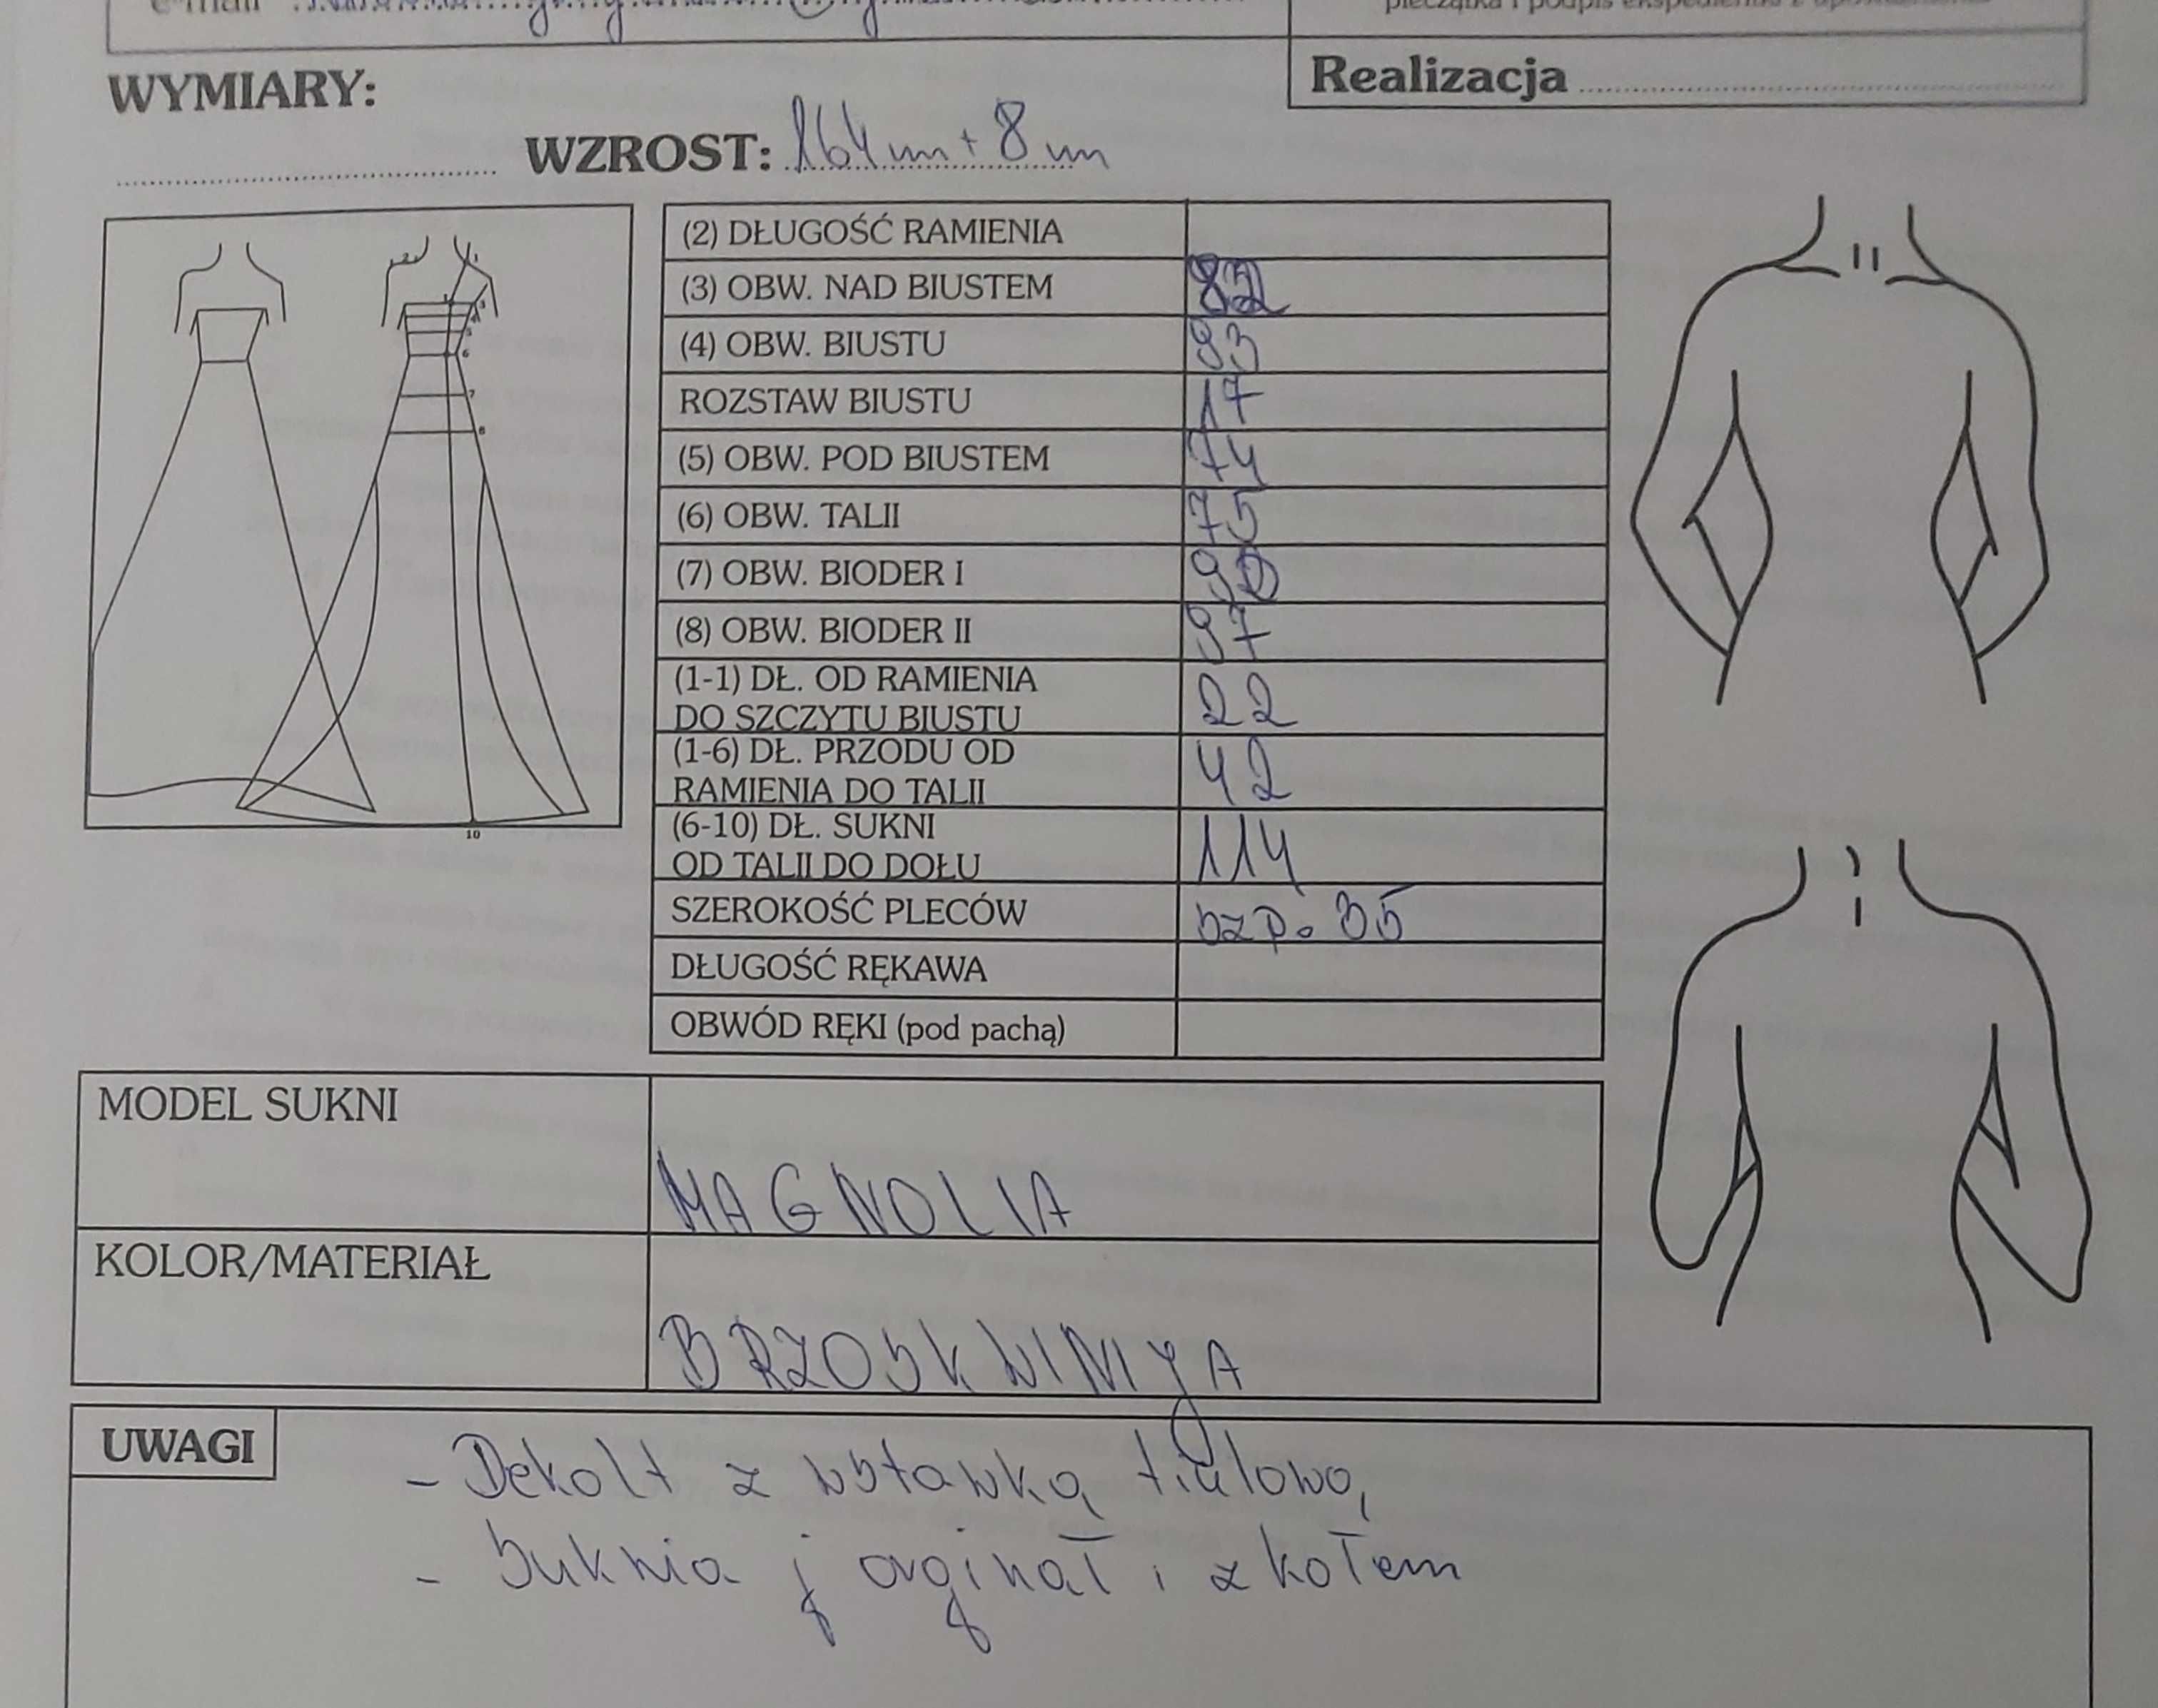 e-mail
WYMIARY:
Realizacja
WZROST: 164 cm + 8 cm
(2) DŁUGOŚĆ RAMIENIA
(3) OBW. NAD BIUSTEM 82
(4) OBW. BIUSTU 93
ROZSTAW BIUSTU 17
(5) OBW. POD BIUSTEM 74
(6) OBW. TALII 75
(7) OBW. BIODER I
(8) OBW. BIODER II 97
(1-1) DŁ. OD RAMIENIA
DO SZCZYTU BIUSTU 22
(1-6) DŁ. PRZODU OD
RAMIENIA DO TALII 42
(6-10) DŁ. SUKNI
OD TALII DO DOŁU 114
SZEROKOŚĆ PLECÓW szp. 35
DŁUGOŚĆ RĘKAWA
OBWÓD RĘKI (pod pachą)
10
MODEL SUKNI
MAGNOLIA
KOLOR/MATERIAŁ
BRZOSKWINIYA
UWAGI
- Dekolt z wstawką tiulową
- Suknia j orginał i z kołem